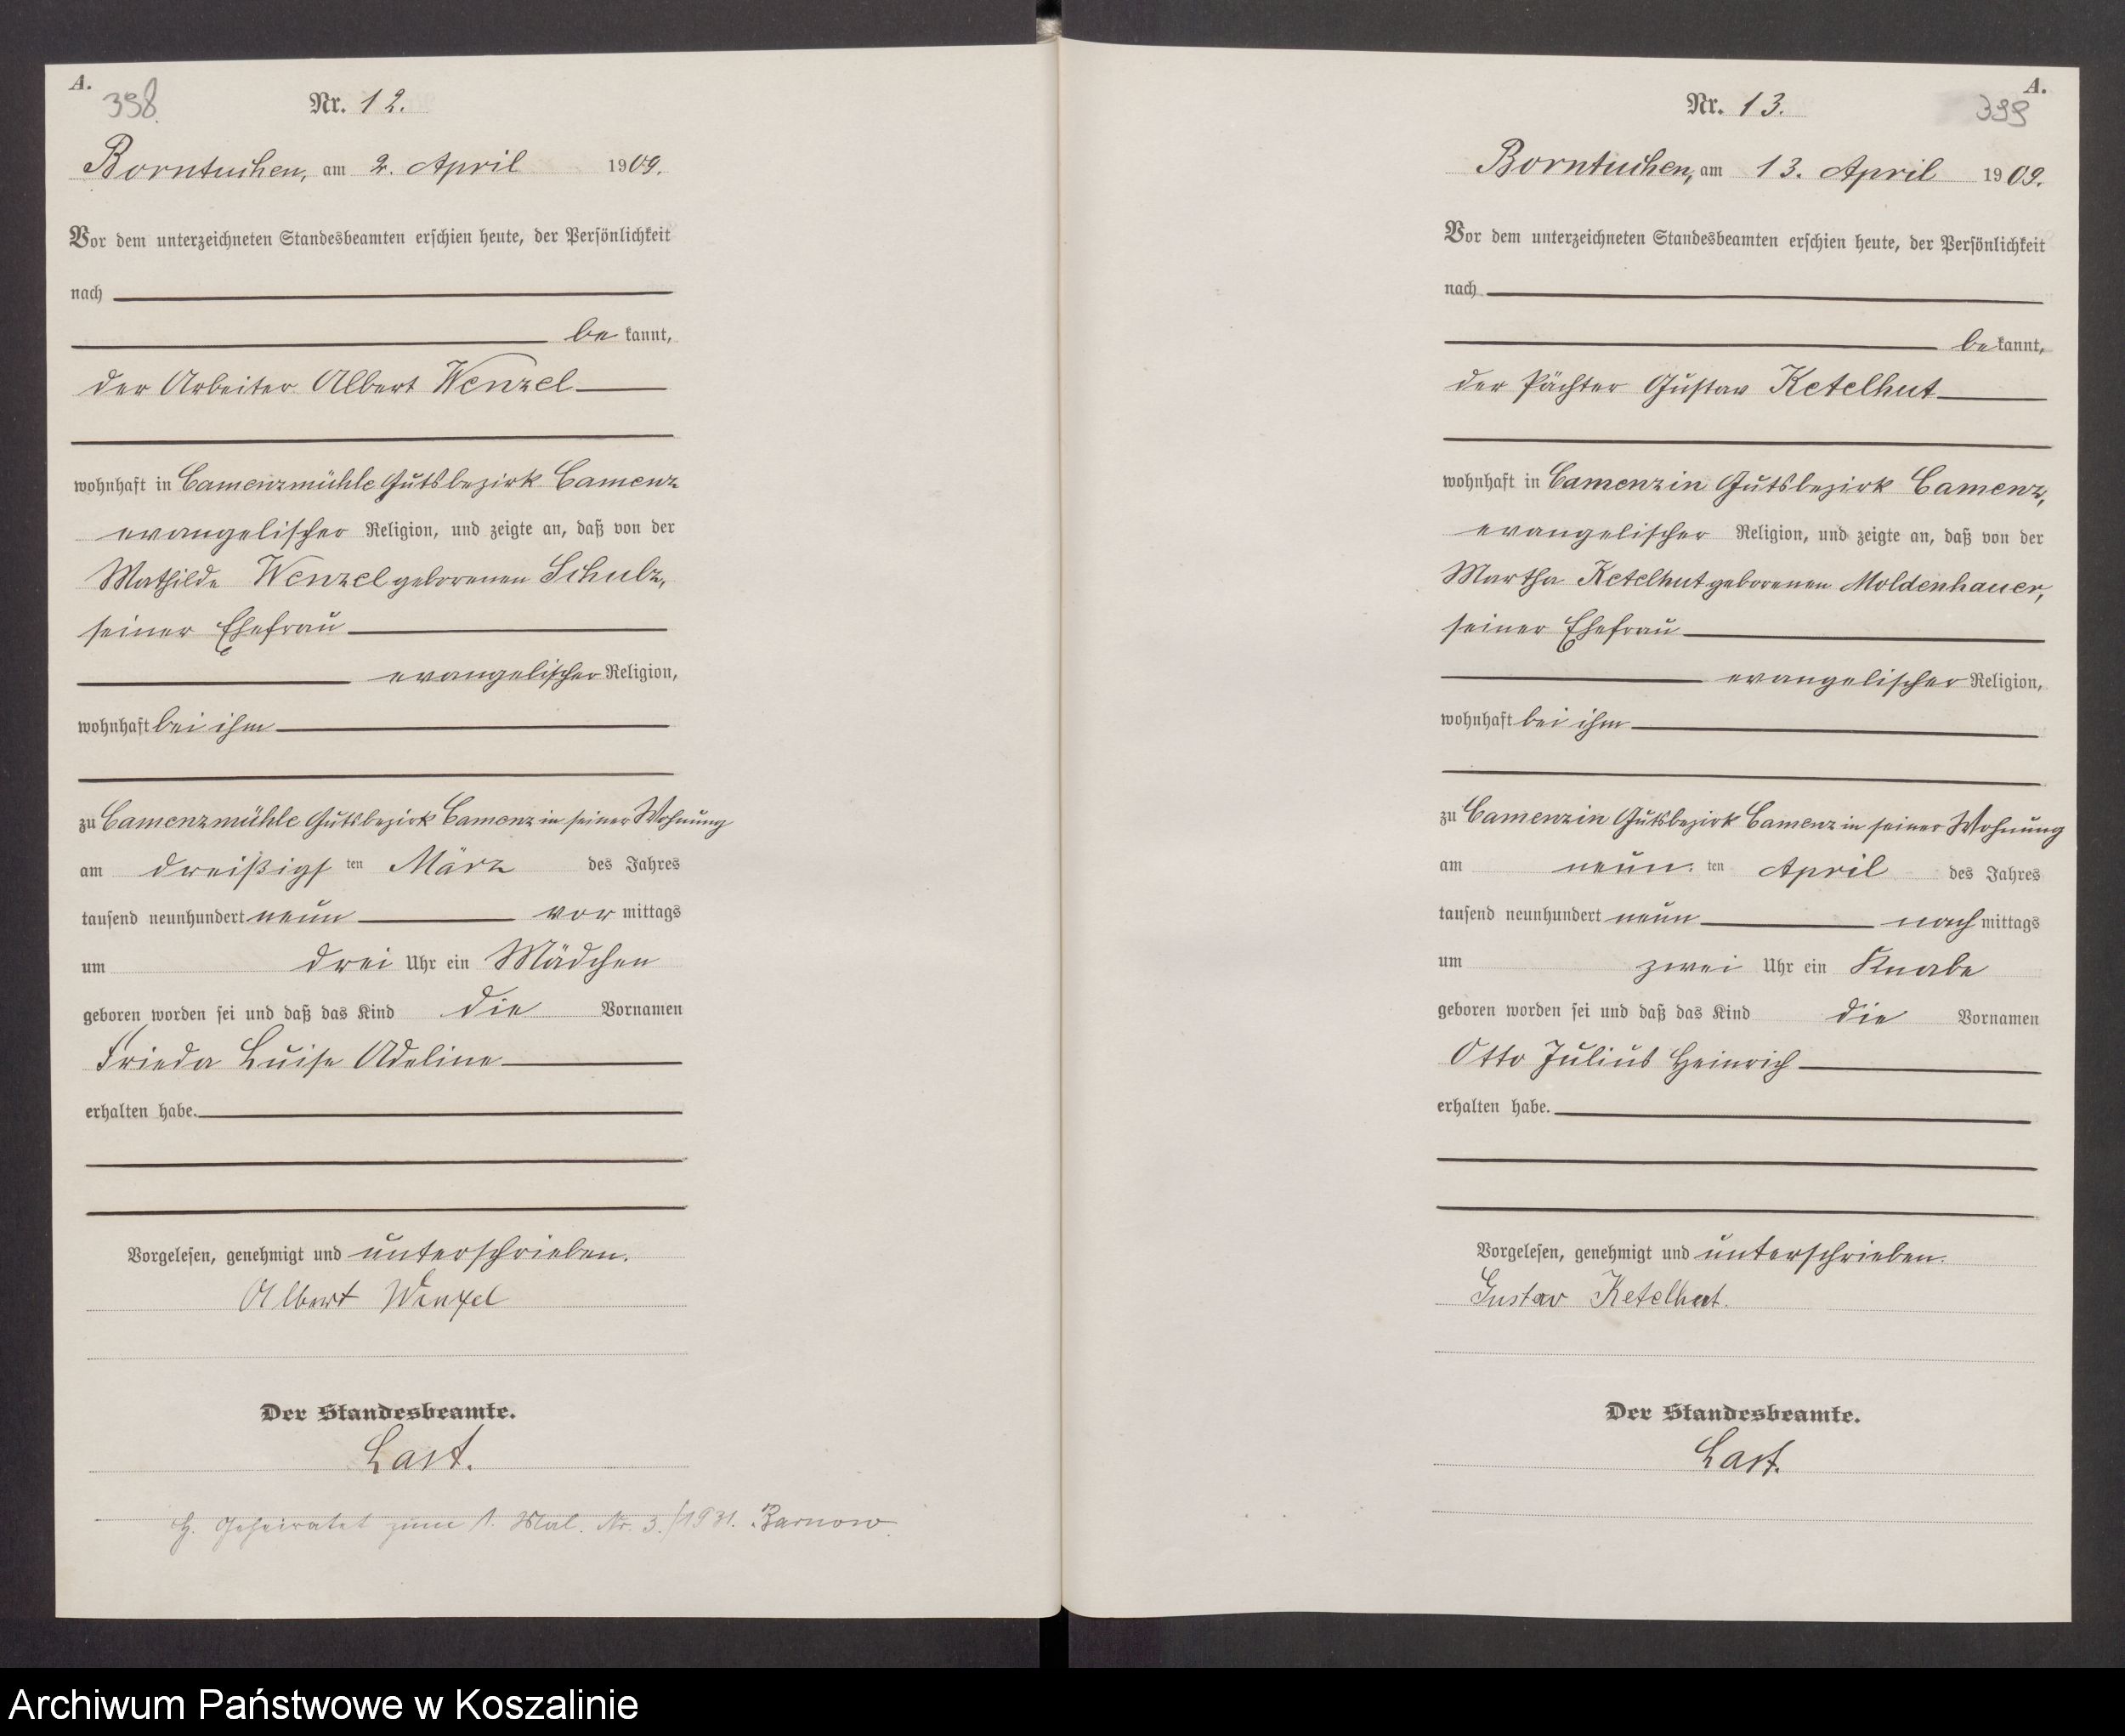 A.
398.
Nr. 12.
Borntuchen, am 2. April 1909.
Vor dem unterzeichneten Standesbeamten erschien heute, der Persönlichkeit
nach
be kannt,
der Arbeiter Albert Wenzel
wohnhaft in Camenzmühle Gutsbezirk Camenz
evangelischer Religion, und zeigte an, daß von der
Mathilde Wenzel geborenen Schulz,
seiner Ehefrau
evangelischer Religion,
wohnhaft bei ihm
zu Camenzmühle Gutsbezirk Camenz in seiner Wohnung
am dreißigs ten März des Jahres
tausend neunhundert neun vor mittags
um drei Uhr ein Mädchen
geboren worden sei und daß das Kind die Vornamen
Frieda Luise Adeline
erhalten habe.
Vorgelesen, genehmigt und unterschrieben.
Albert Wenzel
Der Standesbeamte.
Last.
H. Geheiratet zum 1. Mal. Nr. 3./1931. Barnow.
A.
399
Nr. 13.
Borntuchen, am 13. April 1909.
Vor dem unterzeichneten Standesbeamten erschien heute, der Persönlichkeit
nach
be kannt,
der Pächter Gustav Ketelhut
wohnhaft in Camenzin Gutsbezirk Camenz,
evangelischer Religion, und zeigte an, daß von der
Martha Ketelhut geborenen Moldenhauer,
seiner Ehefrau
evangelischer Religion,
wohnhaft bei ihm
zu Camenzin Gutsbezirk Camenz in seiner Wohnung
am neun ten April des Jahres
tausend neunhundert neun nach mittags
um zwei Uhr ein Knabe
geboren worden sei und daß das Kind die Vornamen
Otto Julius Heinrich
erhalten habe.
Vorgelesen, genehmigt und unterschrieben.
Gustav Ketelhut.
Der Standesbeamte.
Last.
Archiwum Państwowe w Koszalinie